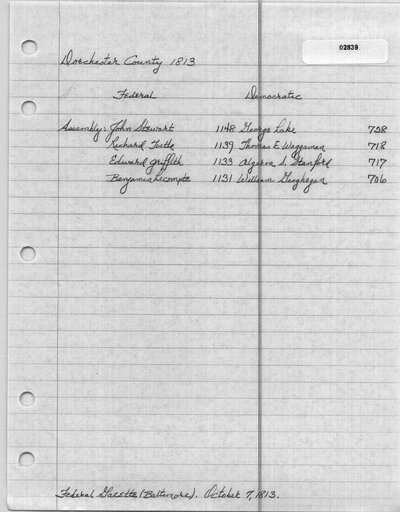 02839
Dorchester County 1813
Federal Democratic
Assembly: John Stewart 1148 George Lake 728
Richard Tootle 1139 Thomas E. Waggaman 718
Edward Griffith 1133 Algernon S. Stanford 717
Benjamin Lecompte 1131 William Geoghegan 706
Federal Gazette (Baltimore). October 7, 1813.